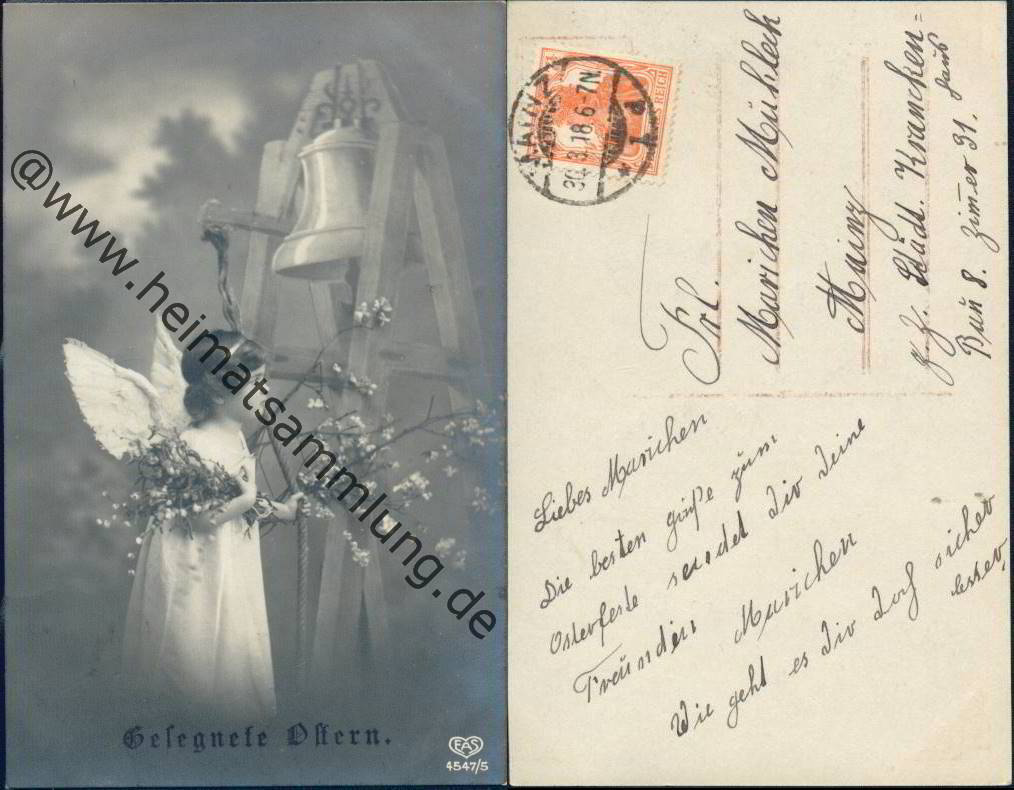 @www.heimatsammlung.de
Gesegnete Ostern.
EAS
4547/5
MAINZ
30.3.18 6-7N.
* 1 d
REICH
Frl.
Marichen Mühleck
Mainz
z. Z. Städt. Kranken=
haus
Bau 8. Zimmer 31.
Liebes Marichen
Die besten grüße zum
Osterfeste sendet Dir Deine
Freundin Marichen
Wie geht es Dir Doch sicher
besser,